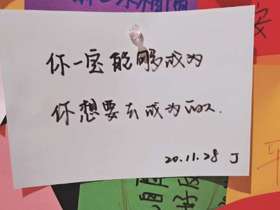 你一定能够成为
你想要去成为的人.
20.11.28 J
平